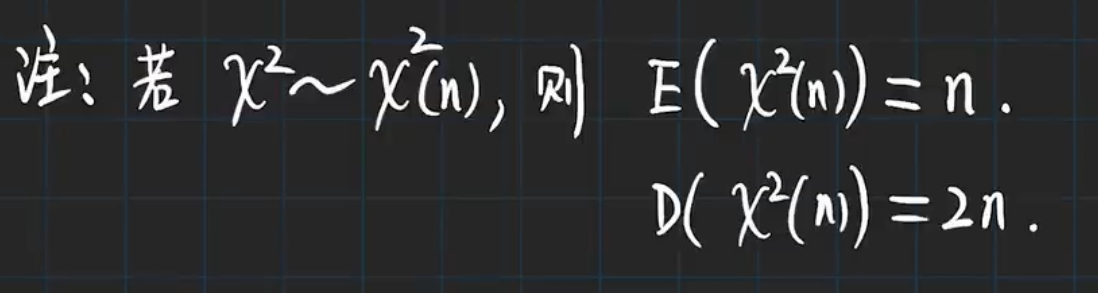 注: 若 χ²~χ²(n), 则 E(χ²(n)) = n.
D(χ²(n)) = 2n.